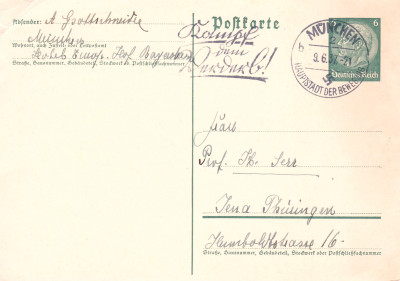 Absender: A. Gottschewski
München
Wohnort, auch Zustell- oder Leitpostamt
Hotel Europ. Hof Bayerstr.
Straße, Hausnummer, Gebäudeteil, Stockwerk od. Postschließfachnummer
Postkarte
Kampf
dem
Verderb!
MÜNCHEN
b
9.6.37-21
HAUPTSTADT DER BEWEGUNG
6
Deutsches Reich
Prof. Th.
Jena Thüringen
Humboldtstrasse 16-
Straße, Hausnummer, Gebäudeteil, Stockwerk oder Postschließfachnummer